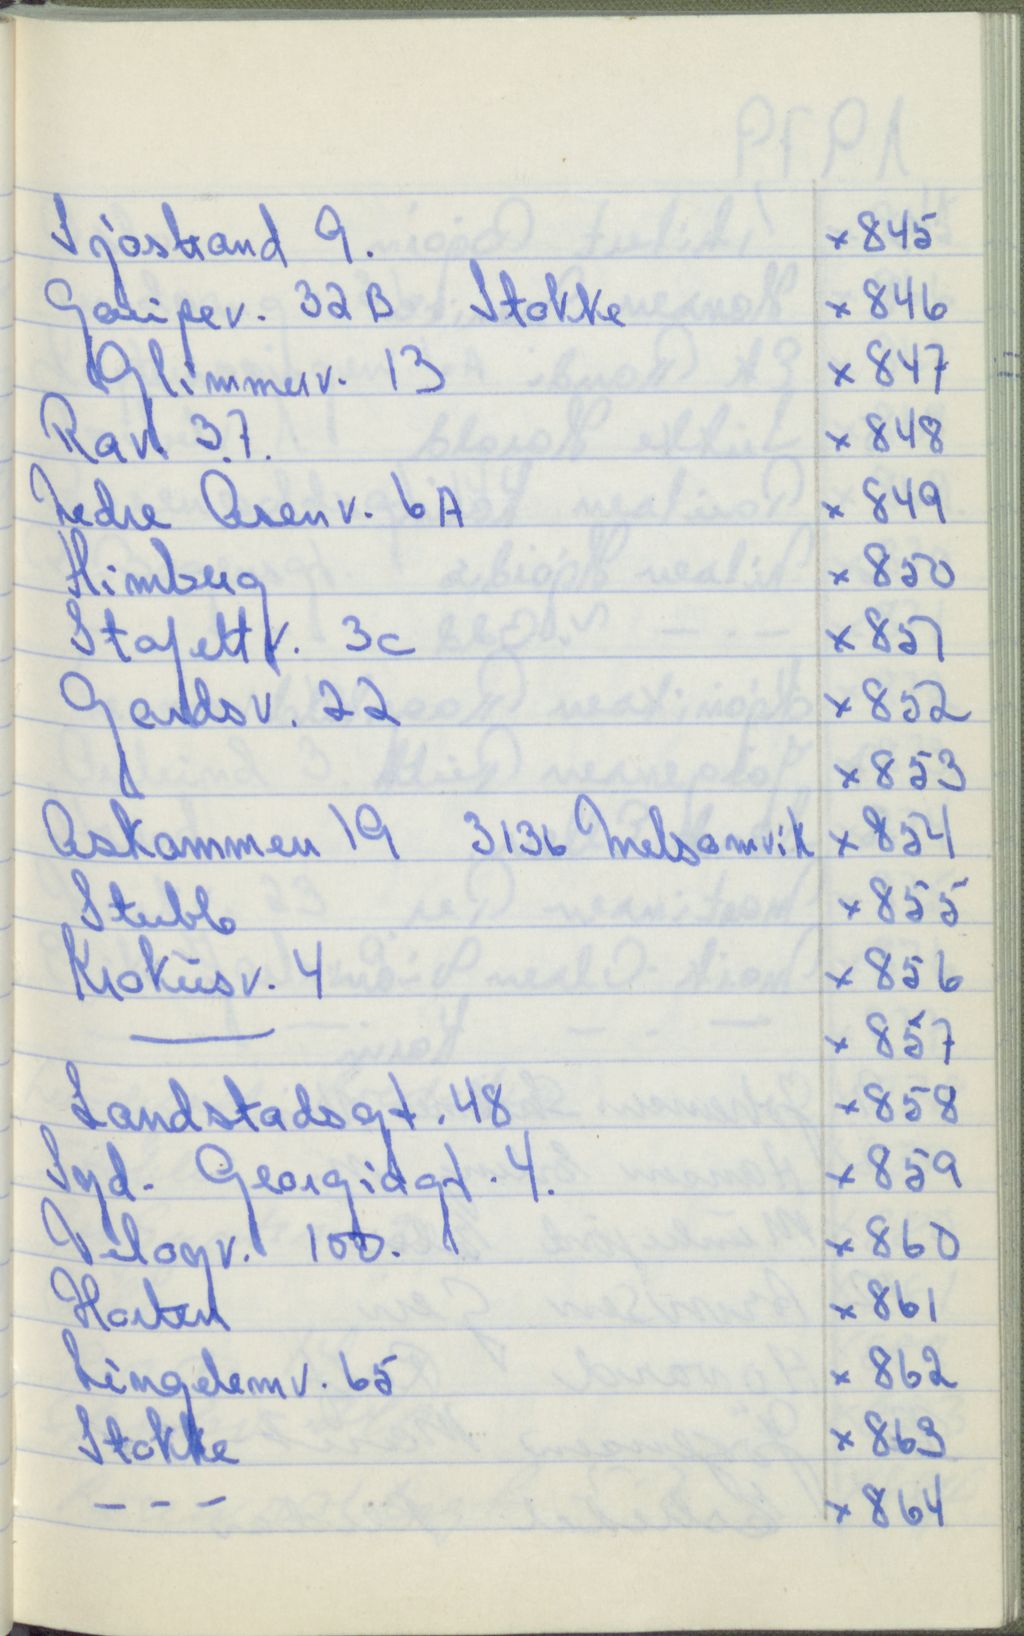 Sjøstrand 9. x 845
Gauperv. 32B Stokke x 846
Glimmerv. 13 x 847
Rav. 37. x 848
Nedre Åsenv. 6A x 849
Himberg x 850
Stafettv. 3c x 851
Gardsv. 22 x 852
x 853
Askammen 19 3136 Melsomvik x 854
Stubb x 855
Krokusv. 4 x 856
— x 857
Landstadsgt. 48 x 858
Syd. Georgiagt. 4. x 859
Velogv. 10D. x 860
Horten x 861
Lingelemv. 65 x 862
Stokke x 863
- - - x 864